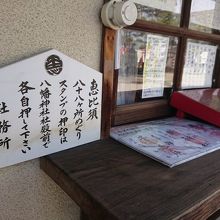 恵比須
八十八ヶ所めぐり
スタンプの押印は
八幡神社社殿前で
各自押して下さい
社務所